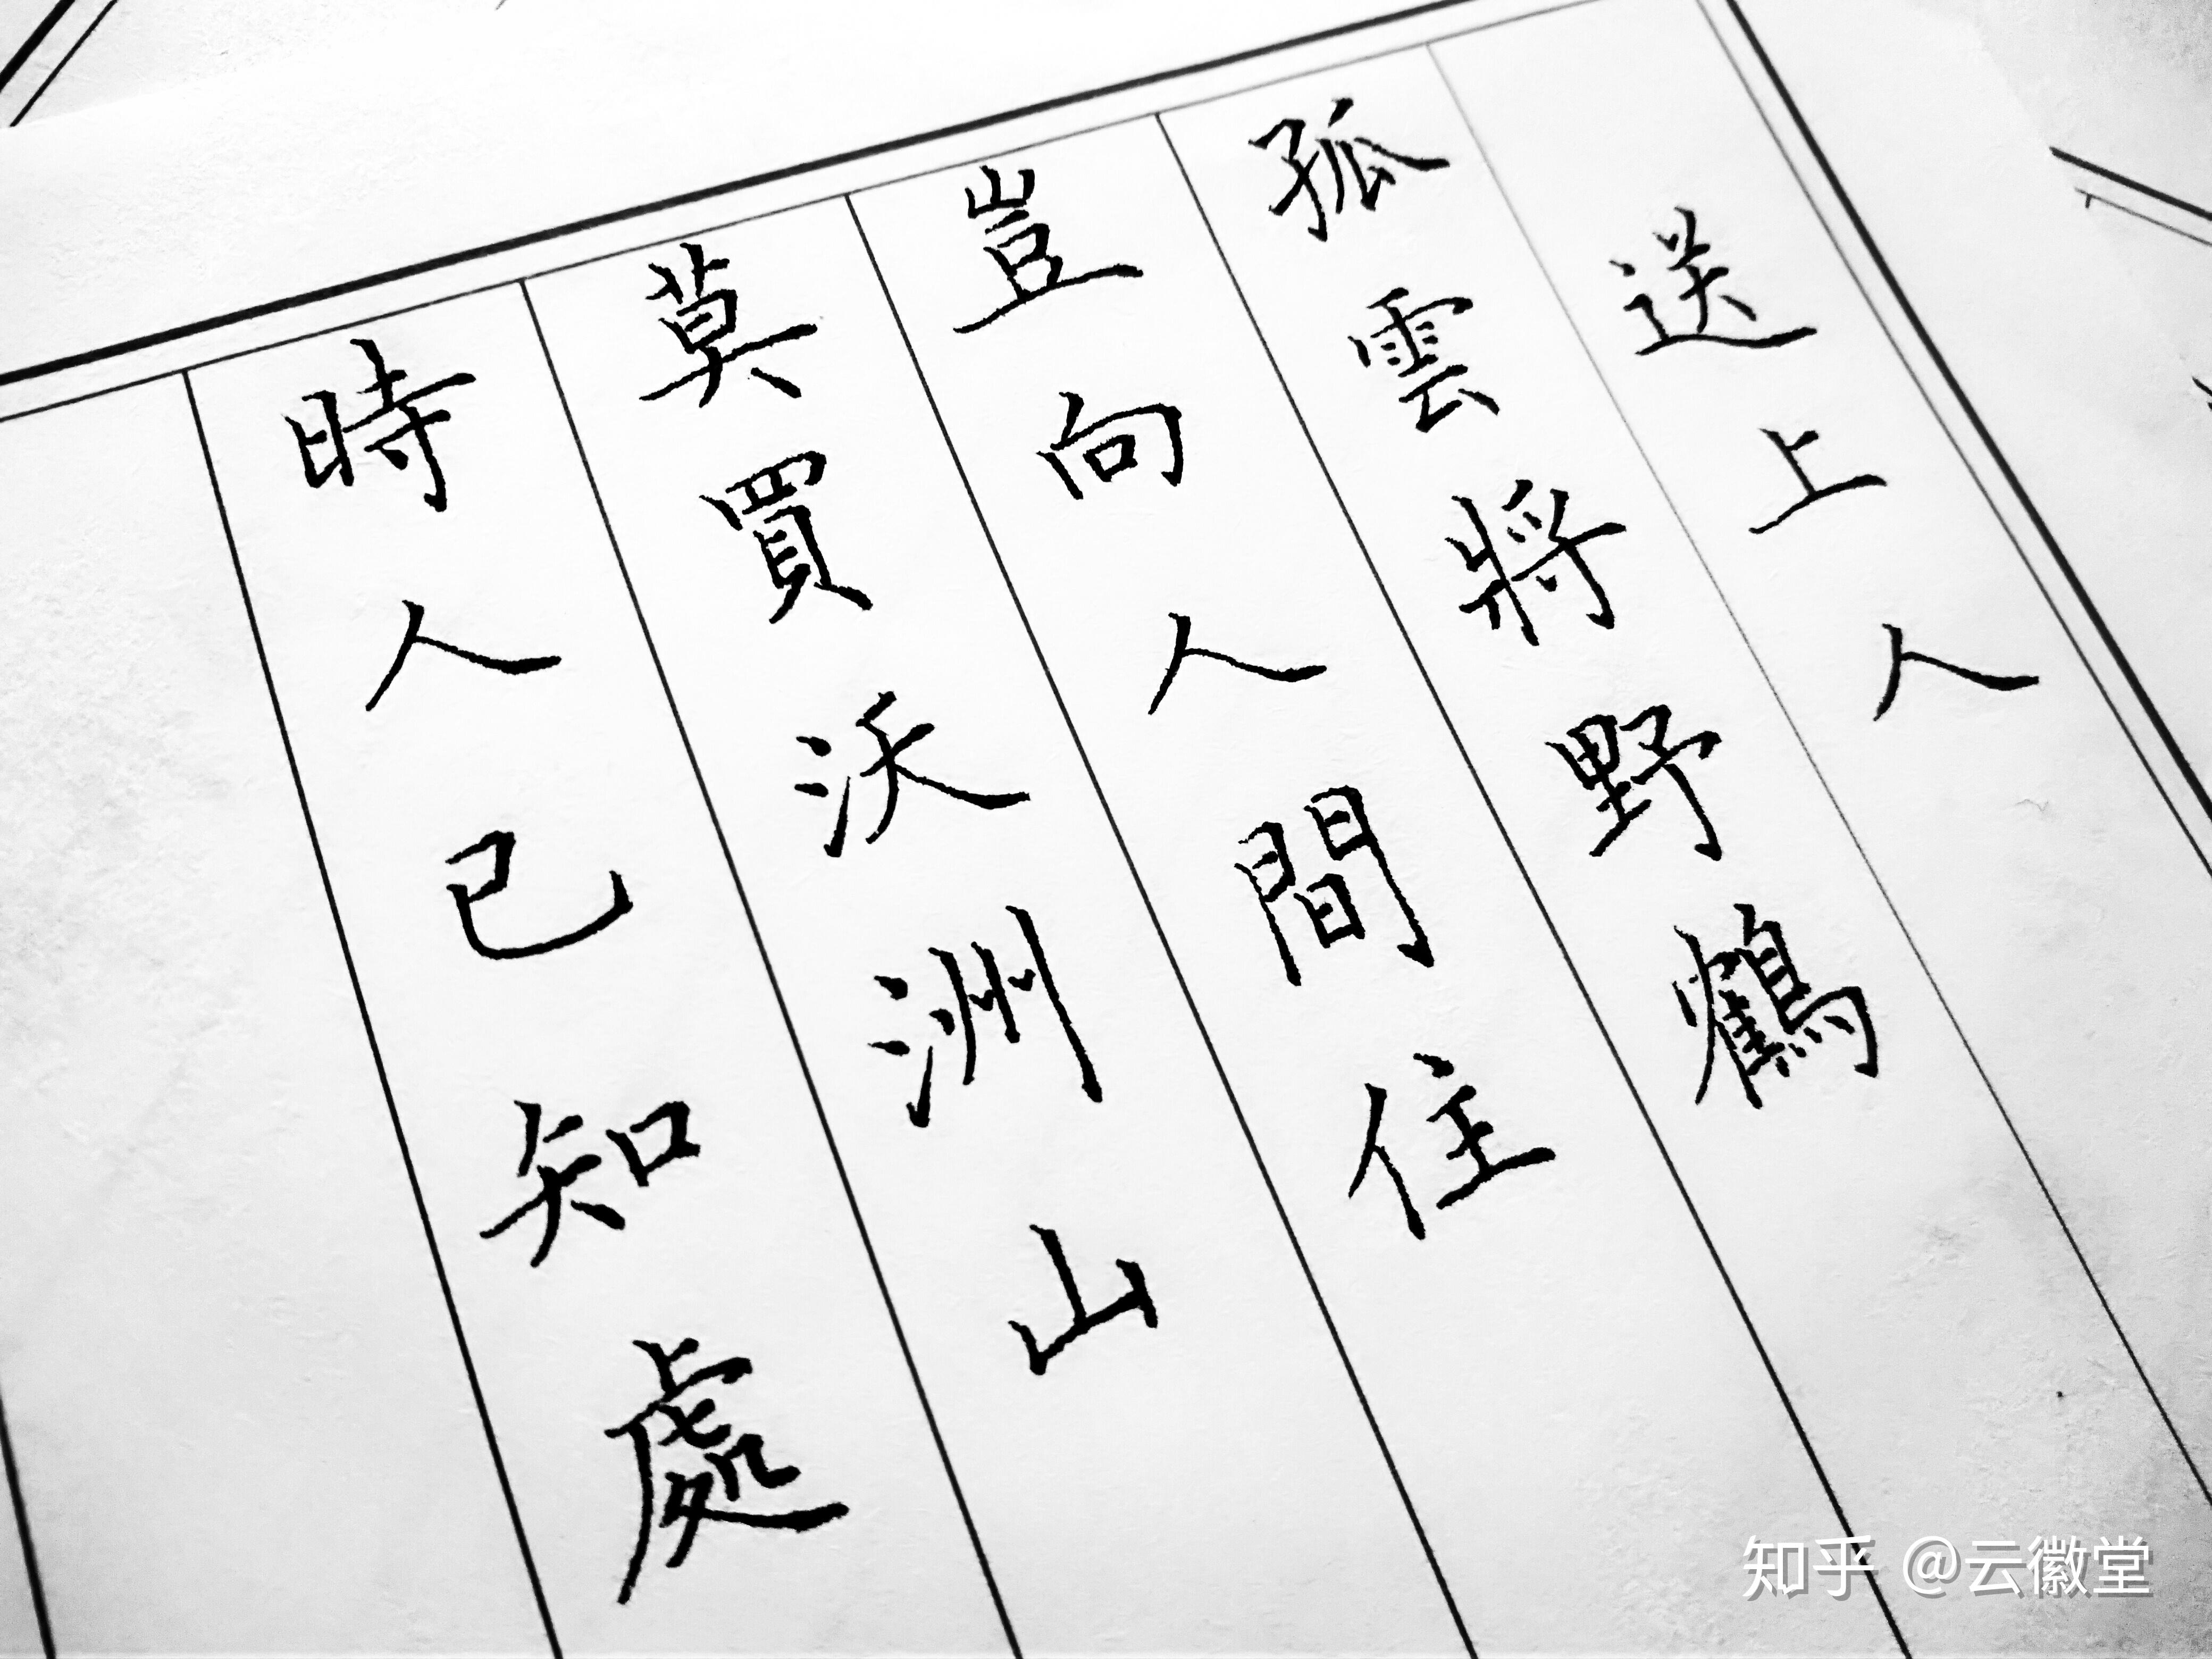 送上人
孤雲將野鶴
豈向人間住
莫買沃洲山
時人已知處
知乎 @云徽堂